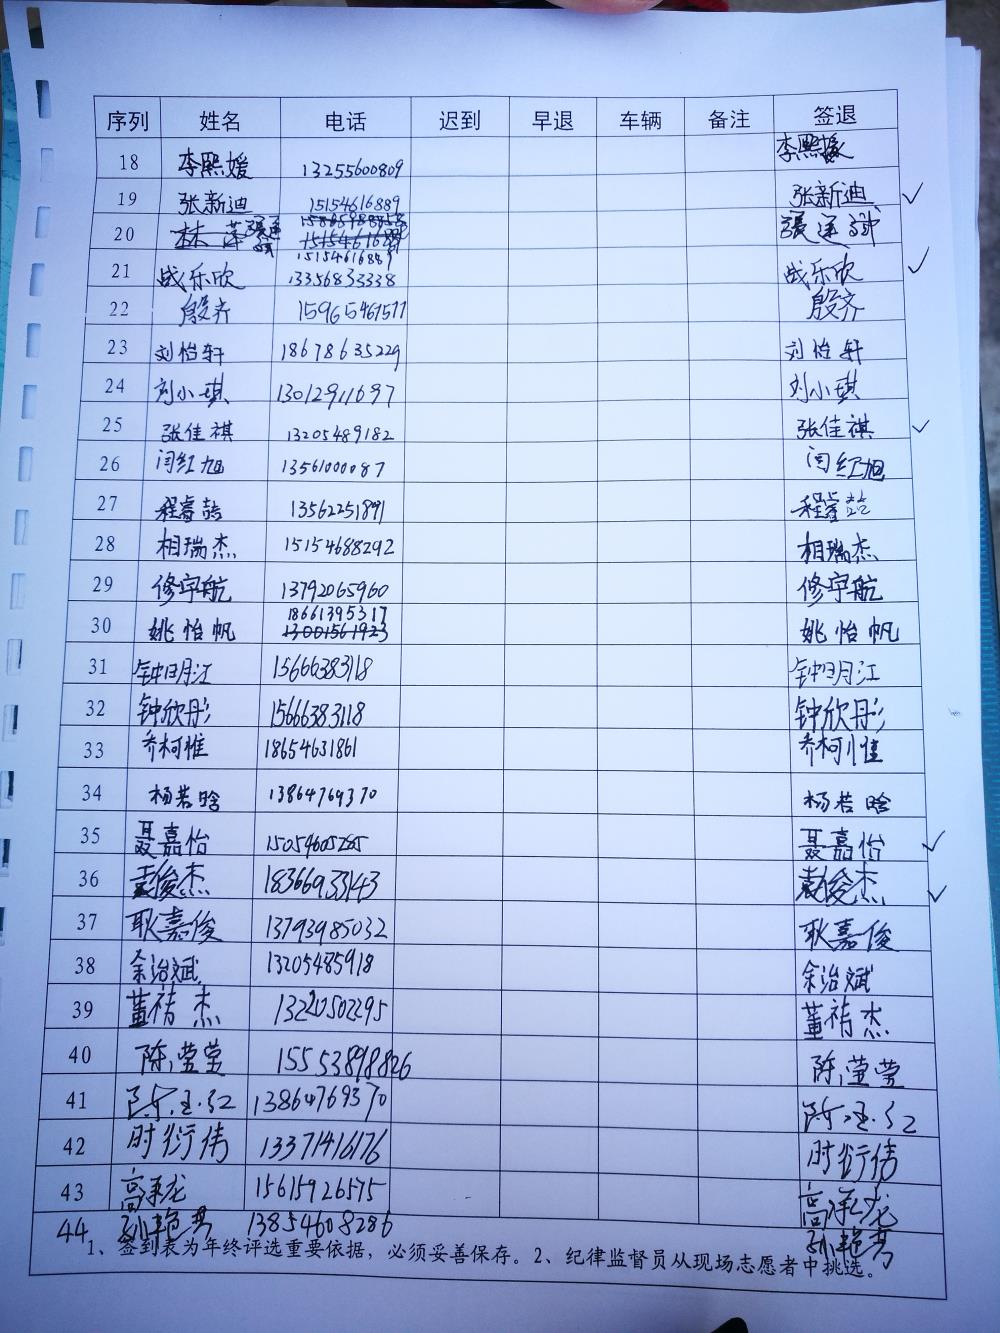 序列 姓名 电话 迟到 早退 车辆 备注 签退
18 李熙媛 13255600809 李熙媛
19 张新迪 15154616889 张新迪 ✓
20 15154616889
21 战乐欣 13356833338 战乐欣 ✓
22 殷齐 15965467577 殷齐
23 刘怡轩 18678635229 刘怡轩
24 刘小琪 13012911697 刘小琪
25 张佳祺 13205489182 张佳祺 ✓
26 闫红旭 13561000087 闫红旭
27 程睿喆 13562251891 程睿喆
28 相瑞杰 15154688292 相瑞杰
29 修宇航 13792065960 修宇航
18661395317
30 姚怡帆 13001561923 姚怡帆
31 钟明江 15666383118 钟明江
32 钟欣彤 15666383118 钟欣彤
33 乔柯惟 18654631861 乔柯惟
34 杨若晗 13864769370 杨若晗
35 聂嘉怡 15054605265 聂嘉怡 ✓
36 袁俊杰 18366933143 袁俊杰 ✓
37 耿嘉俊 13793985032 耿嘉俊
38 余治斌 13205485918 余治斌
39 董祎杰 13220502295 董祎杰
40 陈莹莹 15553898826 陈莹莹
41 13864769370
42 时衍伟 13371416176 时衍伟
43 高承龙 15615926575 高承龙
44 孙艳秀 13854608286 孙艳秀
1、签到表为年终评选重要依据，必须妥善保存。2、纪律监督员从现场志愿者中挑选。